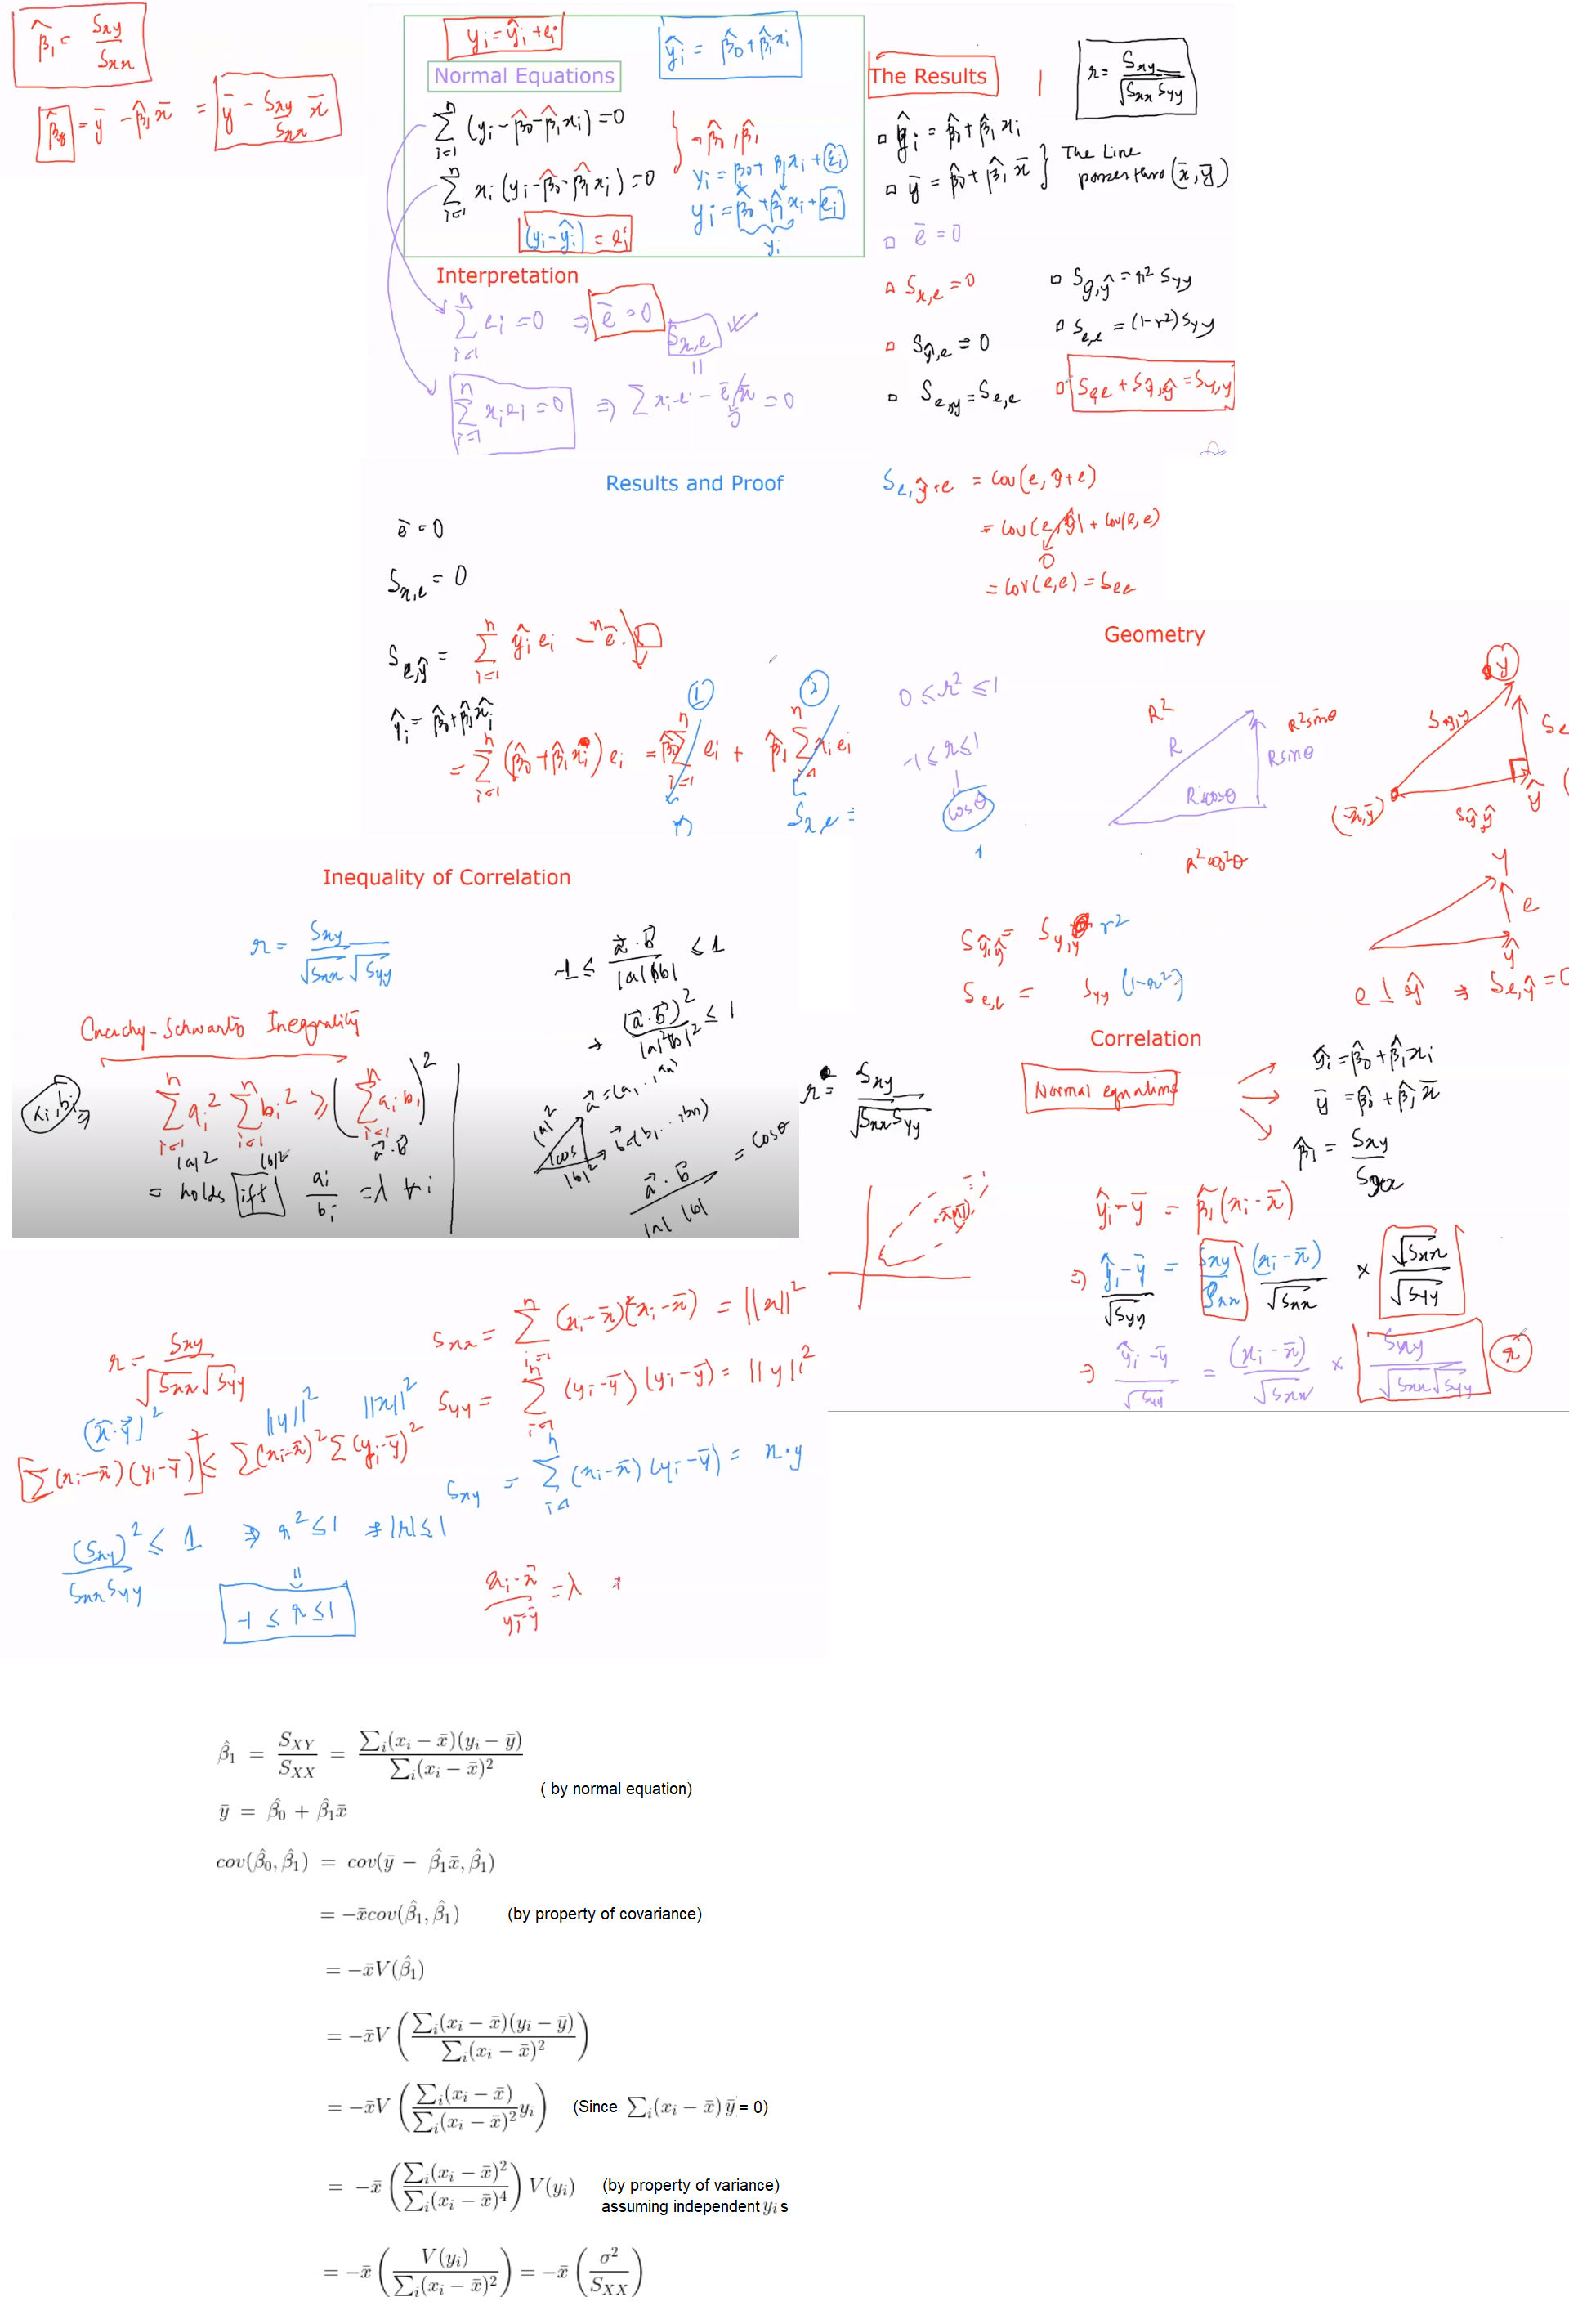 β̂₁ = Sxy / Sxx
β̂₀ = ȳ - β̂₁ x̄ = ȳ - (Sxy / Sxx) x̄
yᵢ = ŷᵢ + eᵢ
ŷᵢ = β̂₀ + β̂₁xᵢ
Normal Equations
∑ᵢ₌₁ⁿ (yᵢ - β̂₀ - β̂₁xᵢ) = 0
∑ᵢ₌₁ⁿ xᵢ (yᵢ - β̂₀ - β̂₁xᵢ) = 0
} → β̂₀, β̂₁
yᵢ = β₀ + β₁xᵢ + εᵢ
yᵢ = β̂₀ + β̂₁xᵢ + eᵢ
yᵢ
(yᵢ - ŷᵢ) = eᵢ
Interpretation
∑ᵢ₌₁ⁿ eᵢ = 0 ⇒ ē = 0
Sx,e
∑ᵢ₌₁ⁿ xᵢeᵢ = 0 ⇒ ∑xᵢeᵢ - ē x̄ = 0
The Results
r = Sxy / √(Sxx Syy)
ŷᵢ = β̂₀ + β̂₁xᵢ
ȳ = β̂₀ + β̂₁x̄ } The Line passes thro (x̄, ȳ)
ē = 0
Sx,e = 0
Sŷ,ŷ = r² Syy
Sŷ,e = 0
Se,e = (1-r²) Syy
Se,y = Se,e
See + Sŷ,ŷ = Sy,y
Results and Proof
ē = 0
Sx,e = 0
Se,ŷ = ∑ᵢ₌₁ⁿ ŷᵢ eᵢ - n ē.
ŷᵢ = β̂₀ + β̂₁xᵢ
= ∑ᵢ₌₁ⁿ (β̂₀ + β̂₁xᵢ) eᵢ = β̂₀ ∑ᵢ₌₁ⁿ eᵢ + β̂₁ ∑ᵢ₌₁ⁿ xᵢeᵢ
① ②
Sx,e =
Se,ŷ+e = Cov(e, ŷ+e)
= Cov(e, ŷ) + Cov(e, e)
0
= Cov(e,e) = See
Geometry
0 ≤ r² ≤ 1
-1 ≤ r ≤ 1
cosθ
R²
R
R²sin²θ
R sinθ
R cosθ
R²cos²θ
y
Sy,y
Se
ŷ
(x̄,ȳ)
Sŷ,ŷ
y
e
ŷ
Sŷ,ŷ = Sy,y r²
Se,e = Syy (1-r²)
e ⊥ ŷ ⇒ Se,ŷ = 0
Inequality of Correlation
r = Sxy / √Sxx √Syy
-1 ≤ a⃗·b⃗ / |a||b| ≤ 1
→ (a⃗·b⃗)² / |a|²|b|² ≤ 1
Cauchy-Schwartz Inequality
aᵢ,bᵢ ⇒
∑ᵢ₌₁ⁿ aᵢ² ∑ᵢ₌₁ⁿ bᵢ² ≥ (∑ᵢ₌₁ⁿ aᵢbᵢ)²
|a|² |b|² a⃗·b⃗
= holds iff aᵢ/bᵢ = λ ∀ i
a⃗ = (a₁, .. , an)
b⃗ = (b₁ .. , bn)
|a|²
cos
|b|²
a⃗·b⃗ / |a| |b| = cosθ
Correlation
r = Sxy / √(Sxx Syy)
Normal equations
ŷᵢ = β̂₀ + β̂₁xᵢ
ȳ = β̂₀ + β̂₁x̄
β̂₁ = Sxy / Sxx
ŷᵢ - ȳ = β̂₁(xᵢ - x̄)
⇒ (ŷᵢ - ȳ) / √Syy = (Sxy / Sxx) (xᵢ - x̄) / √Sxx × √Sxx / √Syy
⇒ (ŷᵢ - ȳ) / √Syy = (xᵢ - x̄) / √Sxx × Sxy / √Sxx √Syy r
r = Sxy / √Sxx √Syy
Sxx = ∑ᵢ₌₁ⁿ (xᵢ - x̄)(xᵢ - x̄) = ||x||²
Syy = ∑ᵢ₌₁ⁿ (yᵢ - ȳ)(yᵢ - ȳ) = ||y||²
(x⃗·y⃗)² ||y||² ||x||²
[∑(xᵢ - x̄)(yᵢ - ȳ)]² ≤ ∑(xᵢ - x̄)² ∑(yᵢ - ȳ)²
Sxy = ∑ᵢ₌₁ⁿ (xᵢ - x̄)(yᵢ - ȳ) = x·y
(Sxy)² / Sxx Syy ≤ 1 ⇒ r² ≤ 1 ⇒ |r| ≤ 1
-1 ≤ r ≤ 1
(xᵢ - x̄) / (yᵢ - ȳ) = λ
β̂₁ = S_XY / S_XX = ∑ᵢ(xᵢ - x̄)(yᵢ - ȳ) / ∑ᵢ(xᵢ - x̄)²
( by normal equation)
ȳ = β̂₀ + β̂₁x̄
cov(β̂₀, β̂₁) = cov(ȳ - β̂₁x̄, β̂₁)
= -x̄cov(β̂₁, β̂₁) (by property of covariance)
= -x̄V(β̂₁)
= -x̄V ( ∑ᵢ(xᵢ - x̄)(yᵢ - ȳ) / ∑ᵢ(xᵢ - x̄)² )
= -x̄V ( ∑ᵢ(xᵢ - x̄) / ∑ᵢ(xᵢ - x̄)² yᵢ ) (Since ∑ᵢ(xᵢ - x̄) ȳ = 0)
= -x̄ ( ∑ᵢ(xᵢ - x̄)² / ∑ᵢ(xᵢ - x̄)⁴ ) V(yᵢ) (by property of variance)
assuming independent yᵢ s
= -x̄ ( V(yᵢ) / ∑ᵢ(xᵢ - x̄)² ) = -x̄ ( σ² / S_XX )